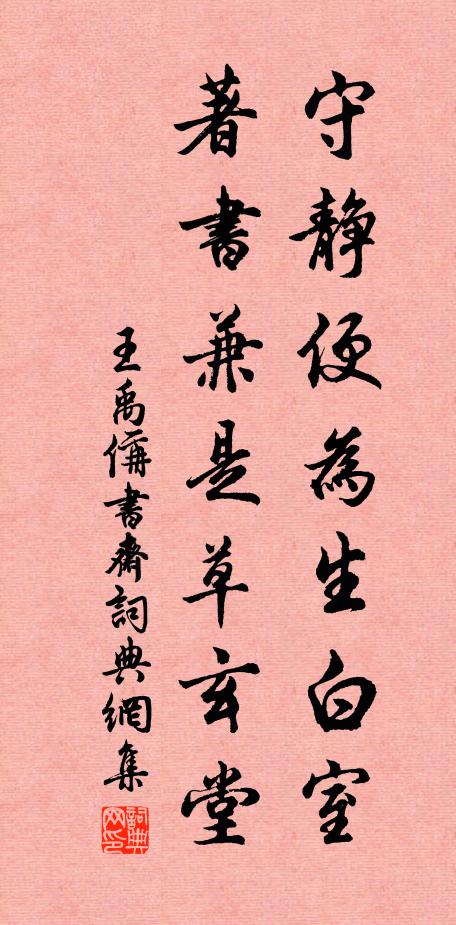 守静便為生白室
著書兼是草玄堂
王禹偁書齋詞典網集
詞典网印